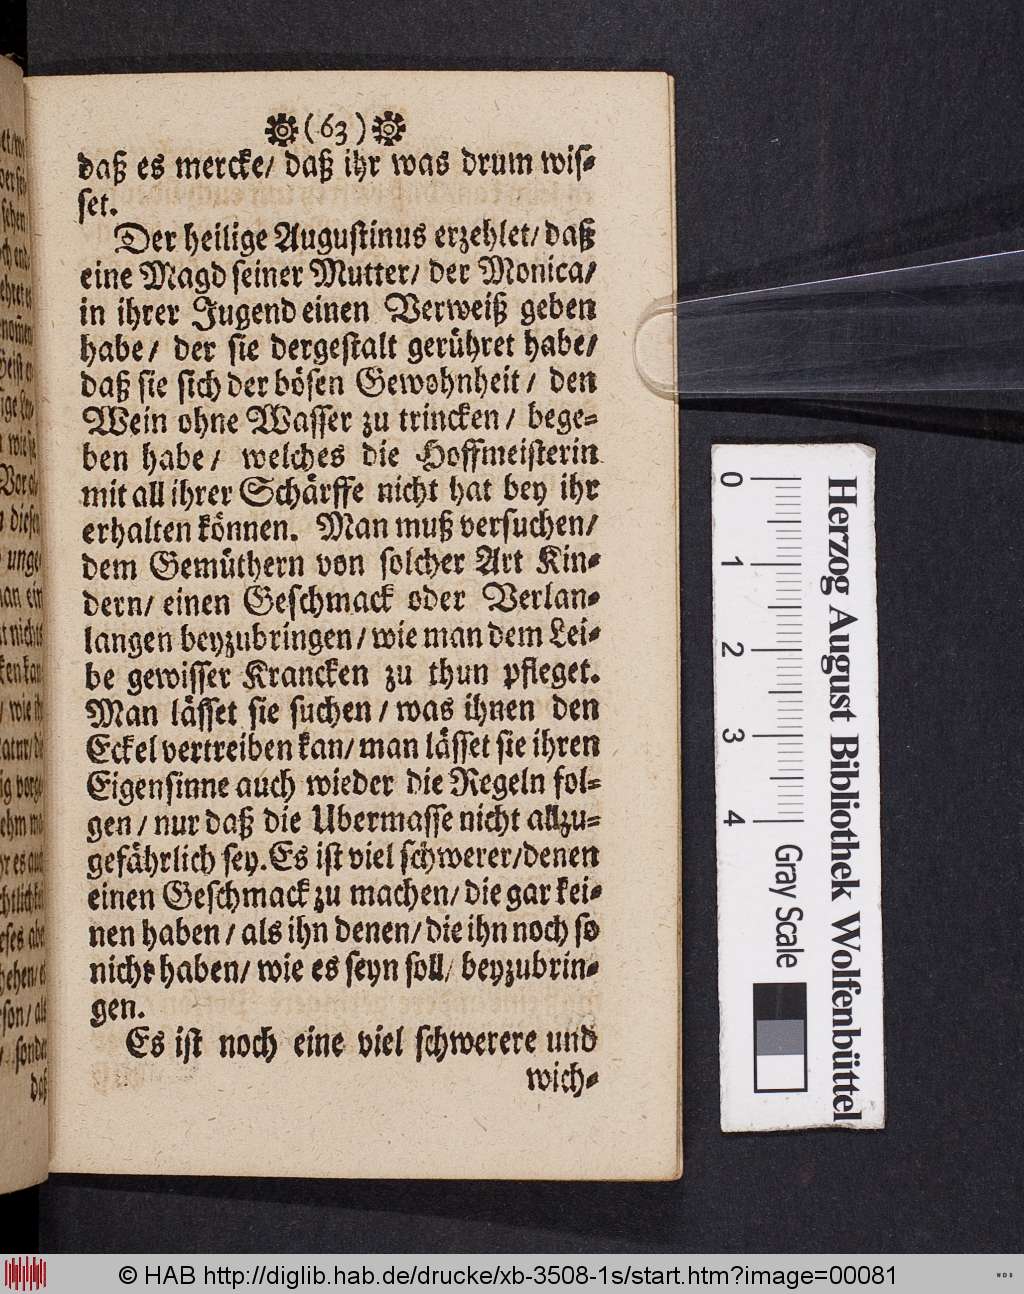 ( 63 )
daß es mercke/ daß ihr was drum wis-
set.
Der heilige Augustinus erzehlet/ daß
eine Magd seiner Mutter/ der Monica/
in ihrer Jugend einen Verweiß geben
habe/ der sie dergestalt gerühret habe/
daß sie sich der bösen Gewohnheit/ den
Wein ohne Wasser zu trincken/ bege-
ben habe/ welches die Hoffmeisterin
mit all ihrer Schärffe nicht hat bey ihr
erhalten können. Man muß versuchen/
dem Gemüthern von solcher Art Kin-
dern/ einen Geschmack oder Verlan-
langen beyzubringen/ wie man dem Lei-
be gewisser Krancken zu thun pfleget.
Man lässet sie suchen/ was ihnen den
Eckel vertreiben kan/ man lässet sie ihren
Eigensinne auch wieder die Regeln fol-
gen/ nur daß die Ubermasse nicht allzu-
gefährlich sey. Es ist viel schwerer/ denen
einen Geschmack zu machen/ die gar kei-
nen haben/ als ihn denen/ die ihn noch so
nicht haben/ wie es seyn soll/ beyzubrin-
gen.
Es ist noch eine viel schwerere und
wich-
0 1 2 3 4 Gray Scale
Herzog August Bibliothek Wolfenbüttel
© HAB http://diglib.hab.de/drucke/xb-3508-1s/start.htm?image=00081